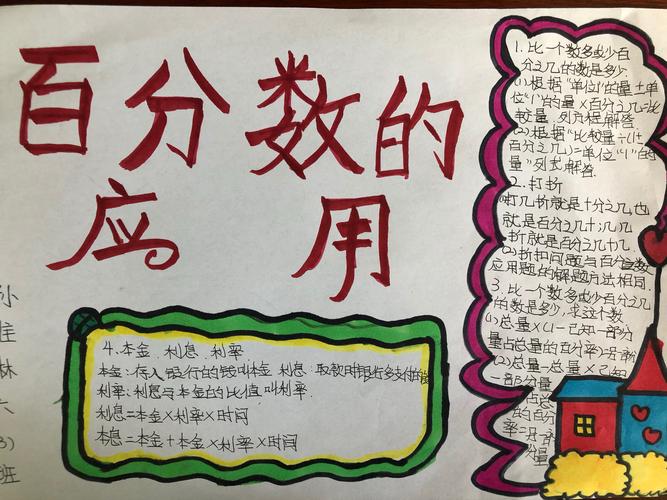 百分数的
应用
孙
佳
林
六
3)
班
4.本金.利息.利率
本金:存入银行的钱叫本金.利息:取款时银行多支付的钱
利率:利息与本金的比值叫利率.
利息=本金×利率×时间
本息=本金+本金×利率×时间
1.比一个数多或少百
分之几的数是多少.
(1)根据"单位1"的量±单
位"1"的量×百分之几=比
较量.列方程解答
(2)根据"比较量÷(1±
百分之几)=单位"1"的
量"列式解答.
2.打折
打几折就是十分之几,也
就是百分之几十;几几
折就是百分之几十几
(2)折扣问题与百分之数
应用题的解题方法相同.
3.比一个数多或少百分之几
的数是多少,求这个数
(1)总量×(1-已知一部分
量占总量的百分率)=另一部分
(2)总量-总量×已知
一部分量
占总
的百分
率=另一部
分量